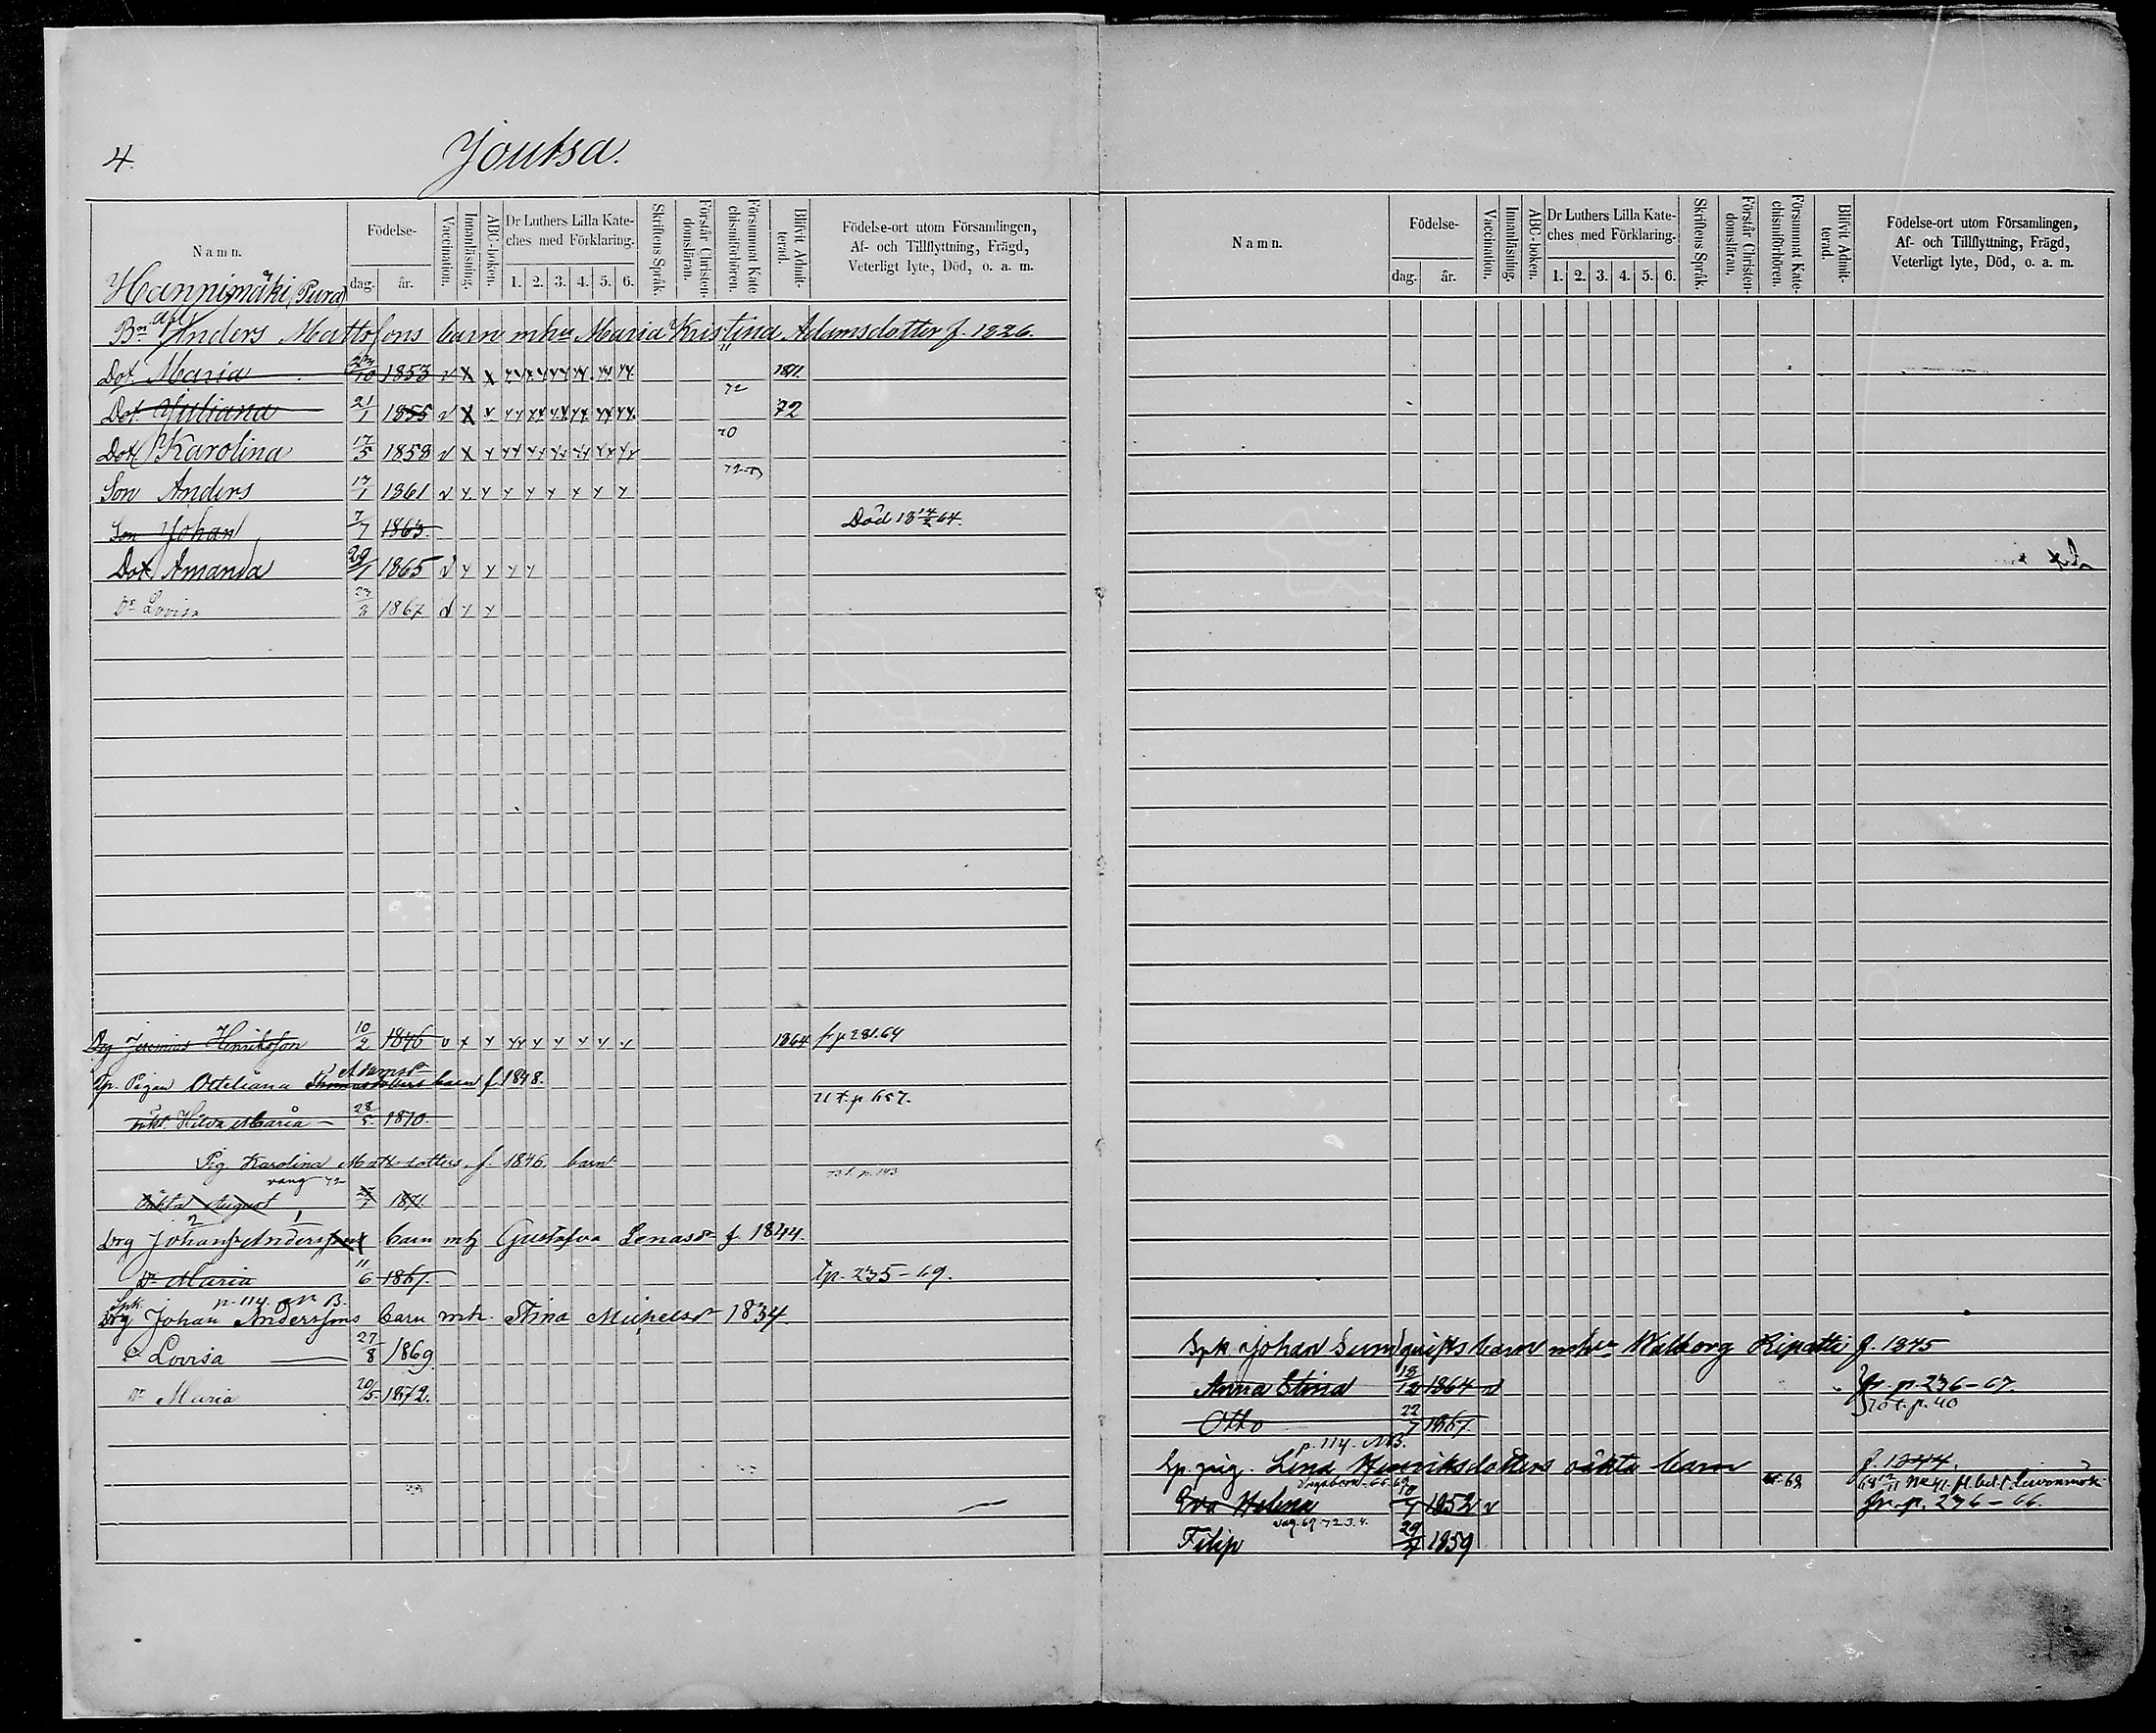 4.
Joutsa.
Namn.
Födelse-
dag. år.
Vaccination.
Innanläsning.
ABC-boken.
Dr Luthers Lilla Kate-
ches med Förklaring.
1. 2. 3. 4. 5. 6.
Skriftens Språk.
Förstår Christen-
domsläran.
Försummat Kate
chismiförhören.
Blifvit Admit-
terad.
Födelse-ort utom Församlingen,
Af- och Tillflyttning, Frägd,
Veterligt lyte, Död, o. a. m.
Hannimäki (Pura)
Bn afl Anders Mattssons barn mhu Maria Kristina Adamsdotter f. 1826.
Dot. Maria 23/10 1853 v x x 1871.
Dot. Juliana 21/1 1855 v x x 72 72
Dot. Karolina 17/5 1858 v x x 70
Son Anders 17/1 1861 v x x x x x x x x 72
Son Johan 7/7 1863. Död 18 64.
Dot. Amanda 29/1 1865 v x x x x
Dr Lovisa 23/3 1867 v x x
Drg Jeremias Henriksson 10/2 1846 v x x 1864 fr p 281.64
Sp. Pigan Otteliana Adamsdr Thomasdotters barn f. 1848.
71 t. p. 657.
oäkt. Hilda Maria 28/5. 1870.
Pig. Karolina Matts dotters f. 1846. barn
73 t. p. 143
vang 72
Oäkta August 27/7 1871.
2 1
Drg Johans Andersson barn mh Gustafva Lenasdr f. 1844.
Dr Maria 11/6 1867. Tp. 235-69.
Spk. p. 114. B.
Drg Johan Anderssons barn mh. Stina Michelsdr 1834
Dr Lovisa 27/8 1869
Dr Maria 20/5 1872.
Namn.
Födelse-
dag. år.
Vaccination.
Innanläsning.
ABC-boken.
Dr Luthers Lilla Kate-
ches med Förklaring.
1. 2. 3. 4. 5. 6.
Skriftens Språk.
Förstår Christen-
domsläran.
Försummat Kate-
chismiförhören.
Blifvit Admit-
terad.
Födelse-ort utom Församlingen,
Af- och Tillflyttning, Frägd,
Veterligt lyte, Död, o. a. m.
Spk Johan Sundquists barn mhu Walborg Ripatti f. 1845
Anna Stina 18/12 1864 v fr. p. 236-67.
70 t. p. 40
Otto 22/7 1867.
p. 114. NB.
Sp. pig. Lena Henriksdotters oäkta barn f. 1844.
Eva Helena 10/7 1852 v 68 fr. p. 236-66.
vag. 69. 72 3. 4.
Filip 29/7 1859